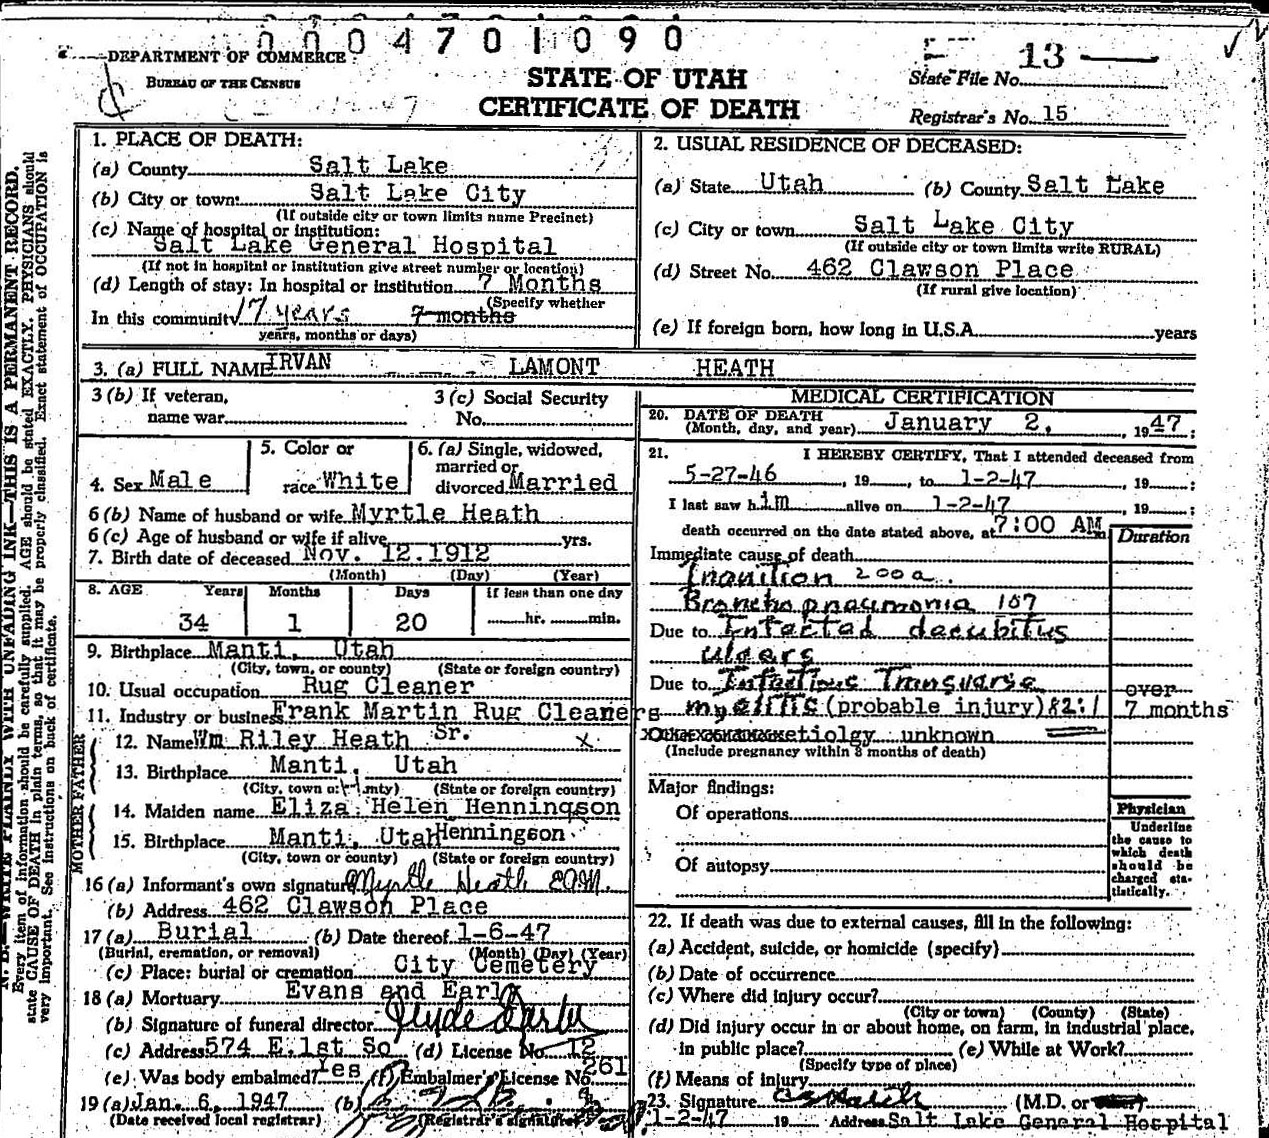 0004701090
DEPARTMENT OF COMMERCE
BUREAU OF THE CENSUS
STATE OF UTAH
CERTIFICATE OF DEATH
13
State File No.
Registrar's No. 15
N. B.—WRITE PLAINLY WITH UNFADING INK—THIS IS A PERMANENT RECORD.
Every item of information should be carefully supplied. AGE should be stated EXACTLY. PHYSICIANS should
state CAUSE OF DEATH in plain terms, so that it may be properly classified. Exact statement of OCCUPATION is
very important. See instructions on back of certificate.
1. PLACE OF DEATH:
(a) County Salt Lake
(b) City or town: Salt Lake City
(If outside city or town limits name Precinct)
(c) Name of hospital or institution:
Salt Lake General Hospital
(If not in hospital or institution give street number or location)
(d) Length of stay: In hospital or institution 7 Months
(Specify whether
In this community 17 years 7 months
years, months or days)
2. USUAL RESIDENCE OF DECEASED:
(a) State Utah (b) County Salt Lake
(c) City or town Salt Lake City
(If outside city or town limits write RURAL)
(d) Street No. 462 Clawson Place
(If rural give location)
(e) If foreign born, how long in U.S.A. years
3. (a) FULL NAME IRVAN LAMONT HEATH
3 (b) If veteran,
name war
3 (c) Social Security
No.
4. Sex Male
5. Color or
race White
6. (a) Single, widowed,
married or
divorced Married
6 (b) Name of husband or wife Myrtle Heath
6 (c) Age of husband or wife if alive yrs.
7. Birth date of deceased Nov. 12.1912
(Month) (Day) (Year)
8. AGE Years Months Days If less than one day
34 1 20 hr. min.
9. Birthplace Manti, Utah
(City, town, or county) (State or foreign country)
10. Usual occupation Rug Cleaner
11. Industry or business Frank Martin Rug Cleaners
FATHER
12. Name Wm Riley Heath Sr. x
13. Birthplace Manti, Utah
(City, town or county) (State or foreign country)
MOTHER
14. Maiden name Eliza Helen Henningson
15. Birthplace Manti, Utah Henningson
(City, town or county) (State or foreign country)
16 (a) Informant's own signature Myrtle Heath
(b) Address 462 Clawson Place
17 (a) Burial (b) Date thereof 1-6-47
(Burial, cremation, or removal) (Month) (Day) (Year)
(c) Place: burial or cremation City Cemetery
18 (a) Mortuary Evans and Early
(b) Signature of funeral director
(c) Address 574 E.1st So (d) License No. 12
(e) Was body embalmed? Yes (f) Embalmer's License No. 261
19 (a) Jan. 6, 1947 (b)
(Date received local registrar) (Registrar's signature)
MEDICAL CERTIFICATION
20. DATE OF DEATH
(Month, day, and year) January 2, 1947;
21. I HEREBY CERTIFY, That I attended deceased from
5-27-46, 19, to 1-2-47, 19;
I last saw him alive on 1-2-47, 19;
death occurred on the date stated above, at 7:00 AM m
Duration
Immediate cause of death
Inanition 200a.
Bronchopneumonia 107
Due to Infected decubitus
ulcers
Due to Infectious Transverse over
myelitis (probable injury) 82:1 7 months
etiolgy unknown
(Include pregnancy within 3 months of death)
Major findings:
Of operations
Of autopsy
Physician
Underline
the cause to
which death
should be
charged sta-
tistically.
22. If death was due to external causes, fill in the following:
(a) Accident, suicide, or homicide (specify)
(b) Date of occurrence
(c) Where did injury occur?
(City or town) (County) (State)
(d) Did injury occur in or about home, on farm, in industrial place,
in public place? (e) While at Work?
(Specify type of place)
(f) Means of injury
23. Signature (M.D. or
1-2-47 19 Address Salt Lake General Hospital